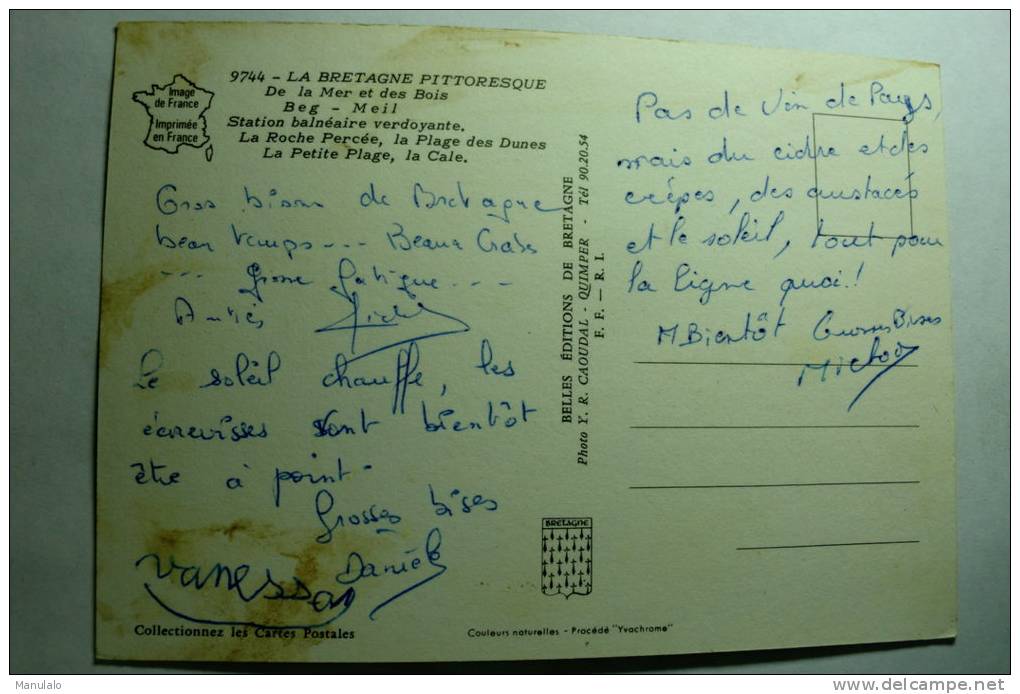 Image
de France
Imprimée
en France
9744 - LA BRETAGNE PITTORESQUE
De la Mer et des Bois
Beg - Meil
Station balnéaire verdoyante.
La Roche Percée, la Plage des Dunes
La Petite Plage, la Cale.
Gros bisous de Bretagne
beau temps --- Beaux Crabes
--- grosse fatigue ---
Le soleil chauffe, les
écrevisses vont bientôt
être à point.
Grosses bises
Danièle
Vanessa
Collectionnez les Cartes Postales
BELLES ÉDITIONS DE BRETAGNE
Photo Y. R. CAOUDAL - QUIMPER - Tél 90.20.54
F. F. — R. I.
BRETAGNE
Couleurs naturelles - Procédé "Yvachrome"
Pas de Vin de Pays,
mais du cidre et des
crêpes, des crustacés
et le soleil, tout pour
la ligne quoi!
Bientôt Grosses Bises
Manulalo
www.delcampe.net